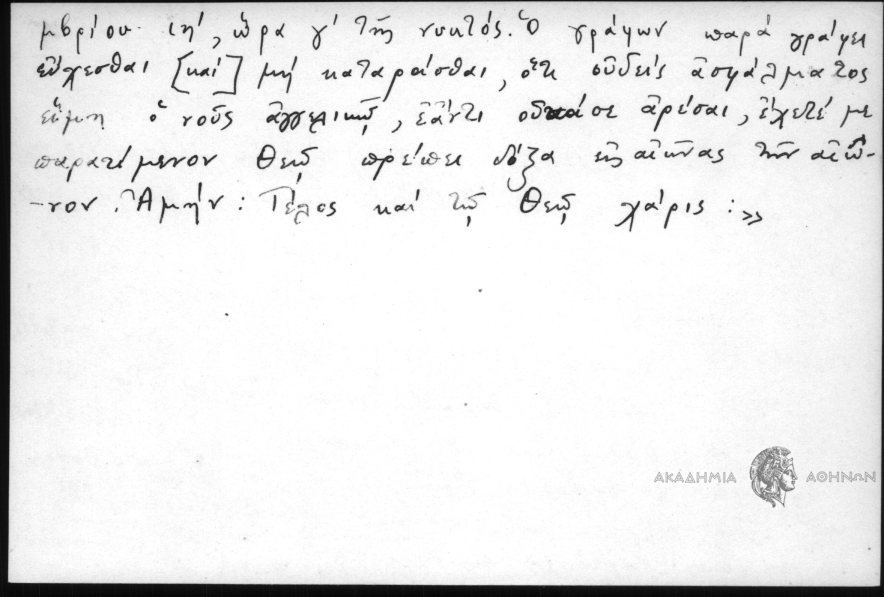 μβρίου ιη', ὥρα γ' τῆς νυκτός. Ὁ γράψων παρά γράψει
εὔχεσθαι [καί] μή καταράσθαι, ὅτι οὐδείς ἀσφάλματος
εἴμη ὁ νοῦς ἀγγελικῷ, ἐάντι ἀρέσαι, ἔχετέ με
παρατίμενον Θεῷ πρέπει δόξα εἰς αἰῶνας τῶν αἰώ-
-νον. Ἀμήν: Τέλος καί τῷ Θεῷ χάρις :
ΑΚΑΔΗΜΙΑ ΑΘΗΝΩΝ